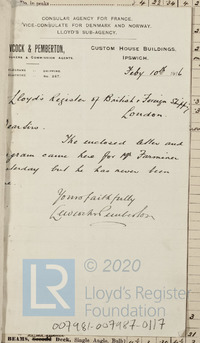 CONSULAR AGENCY FOR FRANCE.
VICE-CONSULATE FOR DENMARK AND NORWAY.
LLOYD'S SUB-AGENCY.
COCK & PEMBERTON,
CUSTOM HOUSE BUILDINGS,
IPSWICH.
Feby 10th
Lloyd's Register of British & Foreign
London
Sirs
The enclosed letter and
gram came here for Mr
but he has never been
Yours faithfully
Pemberton
© 2020
Lloyd's Register
Foundation
007981-007987-0117
BEAMS, Deck, Single Angle, Bulb